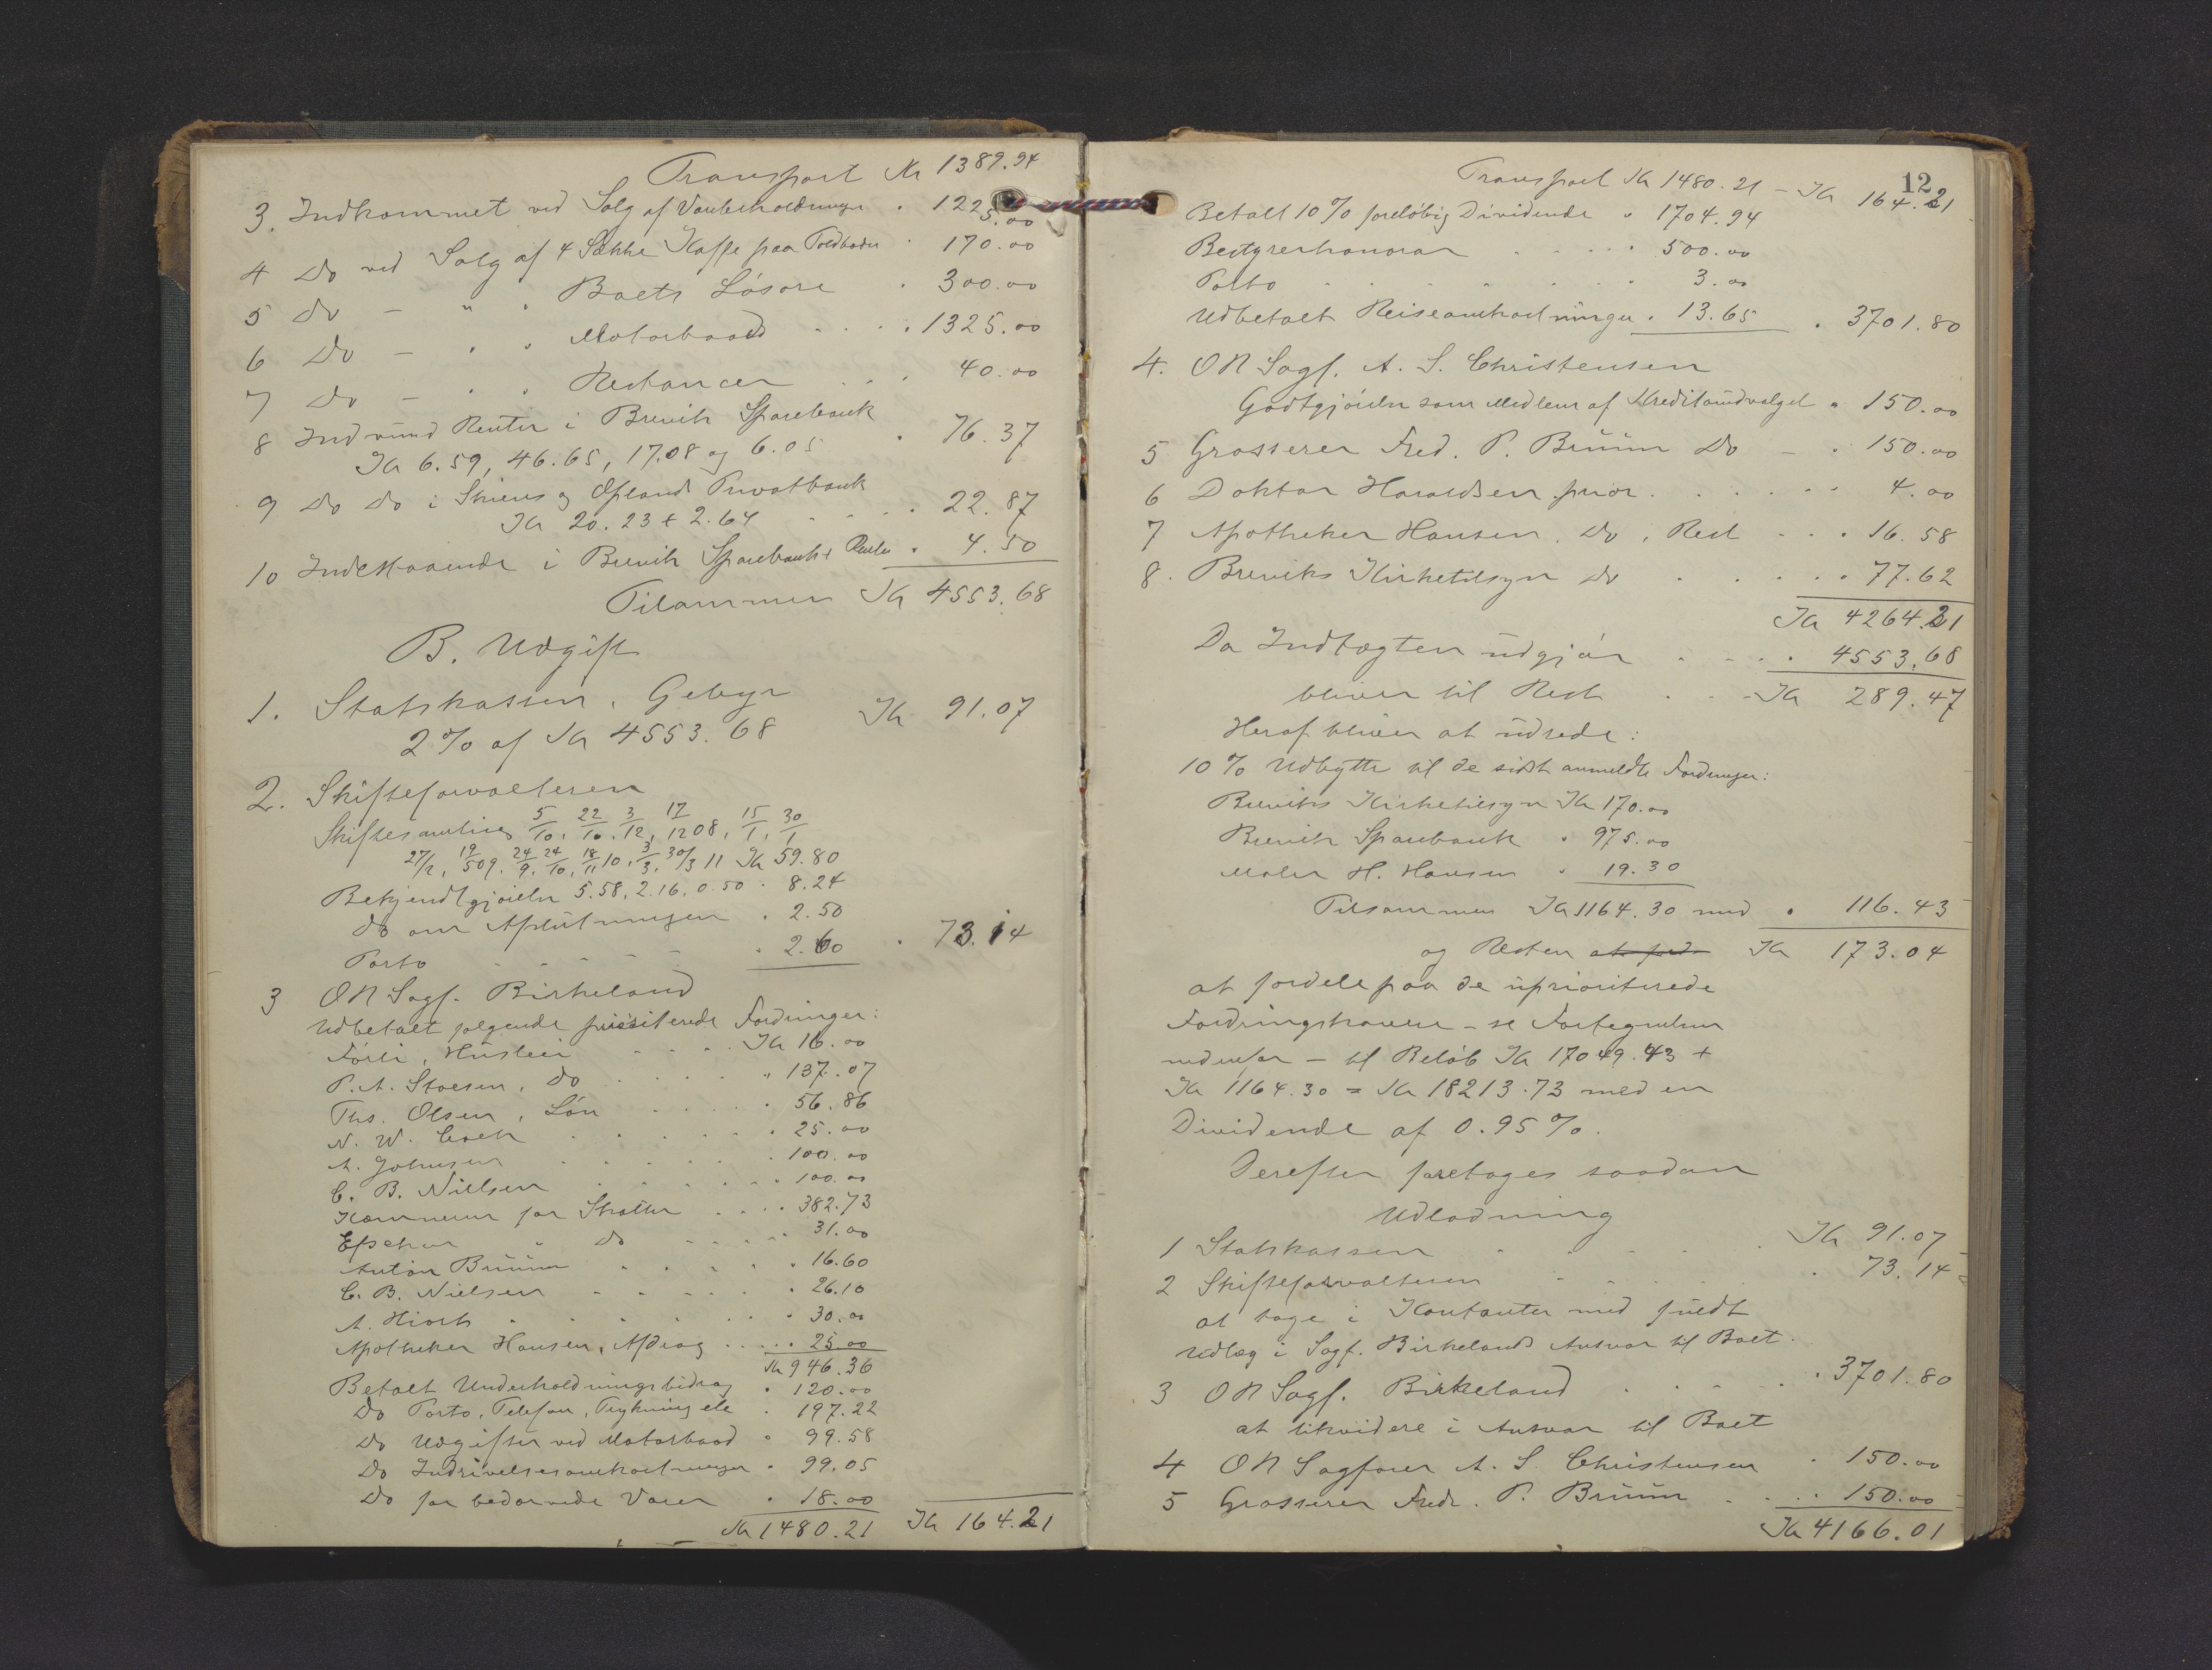 Transport Kr 1389.94
3. Indkommet ved Salg af Varebeholdninger " 1225.00
4 Do ved Salg af 4 Sække Kaffe paa Toldboden " 170.00
5 Do — " " Boets Løsøre " 300.00
6 Do — " " Motorbaad . . . " 1325.00
7 Do — " " Restancer . . . 40.00
8 Indvund Renter i Brevik Sparebank
Kr 6.59, 46.65, 17.08 og 6.05 " 76.37
9 Do Do i Skiens og Opland Privatbank
Kr 20.23 + 2.64 . . . " 22.87
10 Indestaaende i Brevik Sparebank + Renter " 4.50
Tilsammen Kr 4553.68
B. Udgift
1. Statskassen, Gebyr
2% af Kr 4553.68 Kr 91.07
2. Skifteforvalteren
Skiftesamling 5/10, 22/10, 3/12, 17/12 08, 15/1, 30/1,
27/2, 19/5 09, 24/9, 24/10, 18/11 10, 3/3, 30/3 11 Kr 59.80
Bekjendtgjørelse 5.58, 2.16, 0.50 " 8.24
Do om Afslutningen " 2.50
Porto . . . . . " 2.60 " 73.14
3 ON Sagf. Birkeland
Udbetalt følgende prioriterede Fordringer:
Førli, Husleie . . . Kr 16.00
P. A. Stoesen, Do . . . . " 137.07
Ths. Olsen, Løn . . . . " 56.86
N. W. Coch . . . . . " 25.00
A. Johnsen . . . . . " 100.00
C. B. Nielsen . . . . . " 100.00
Kæmneren for Skatter . . . . 382.73
Efsehur " Do . . . . . 31.00
Anton Bruun . . . . . " 16.60
C. B. Nielsen . . . . . " 26.10
A. Hiorth . . . . . " 30.00
Apotheker Hansen, Afdrag . . . . . 25.00
Kr 946.36
Betalt Underholdningsbidrag " 120.00
Do Porto, Telefon, Trykning etc " 197.22
Do Udgifter ved Motorbaad " 99.58
Do Inddrivelsesomkostninger " 99.05
Do for bedærvede Varer " 18.00
Kr 1480.21 Kr 164.21
12
Transport Kr 1480.21 — Kr 164.21
Betalt 10% foreløbig Dividende " 1704.94
Bestyrerhonorar . . . . " 500.00
Porto . . . . . " 3.00
Udbetalt Reiseomkostninger " 13.65 " 3701.80
4. ON Sagf. A. S. Christensen
Godtgjørelse som Medlem af Kreditoudvalget " 150.00
5 Grosserer Fred. P. Bruun Do — " 150.00
6 Doktor Haraldsen prior . . . . . . 4.00
7 Apotheker Hansen, Do, Rest . . . 16.58
8. Breviks Kirketilsyn Do . . . . " 77.62
Kr 4264.21
Da Indtægten udgjør . . . " 4553.68
bliver til Rest . . . Kr 289.47
Heraf bliver at udrede:
10% Udbytte til de sidst anmeldte Fordringer:
Breviks Kirketilsyn Kr 170.00
Brevik Sparebank " 975.00
Maler H. Hansen " 19.30
Tilsammen Kr 1164.30 med " 116.43
og Resten at ford Kr 173.04
at fordele paa de uprioriterede
Fordringshavere — se Fortegnelsen
nedenfor — til Beløb Kr 17049.43 +
Kr 1164.30 = Kr 18213.73 med en
Dividende af 0.95%.
Derefter foretages saadan
Udlodning
1 Statskassen . . . . Kr 91.07
2 Skifteforvalteren . . . " 73.14
at tage i Kontanter med fuldt
Udlæg i Sagf. Birkelands Ansvar til Boet.
3 ON Sagf. Birkeland . . . . " 3701.80
at likvidere i Ansvar til Boet
4 ON Sagfører A. S. Christensen " 150.00
5 Grosserer Fredr. P. Bruun . . . " 150.00
Kr 4166.01